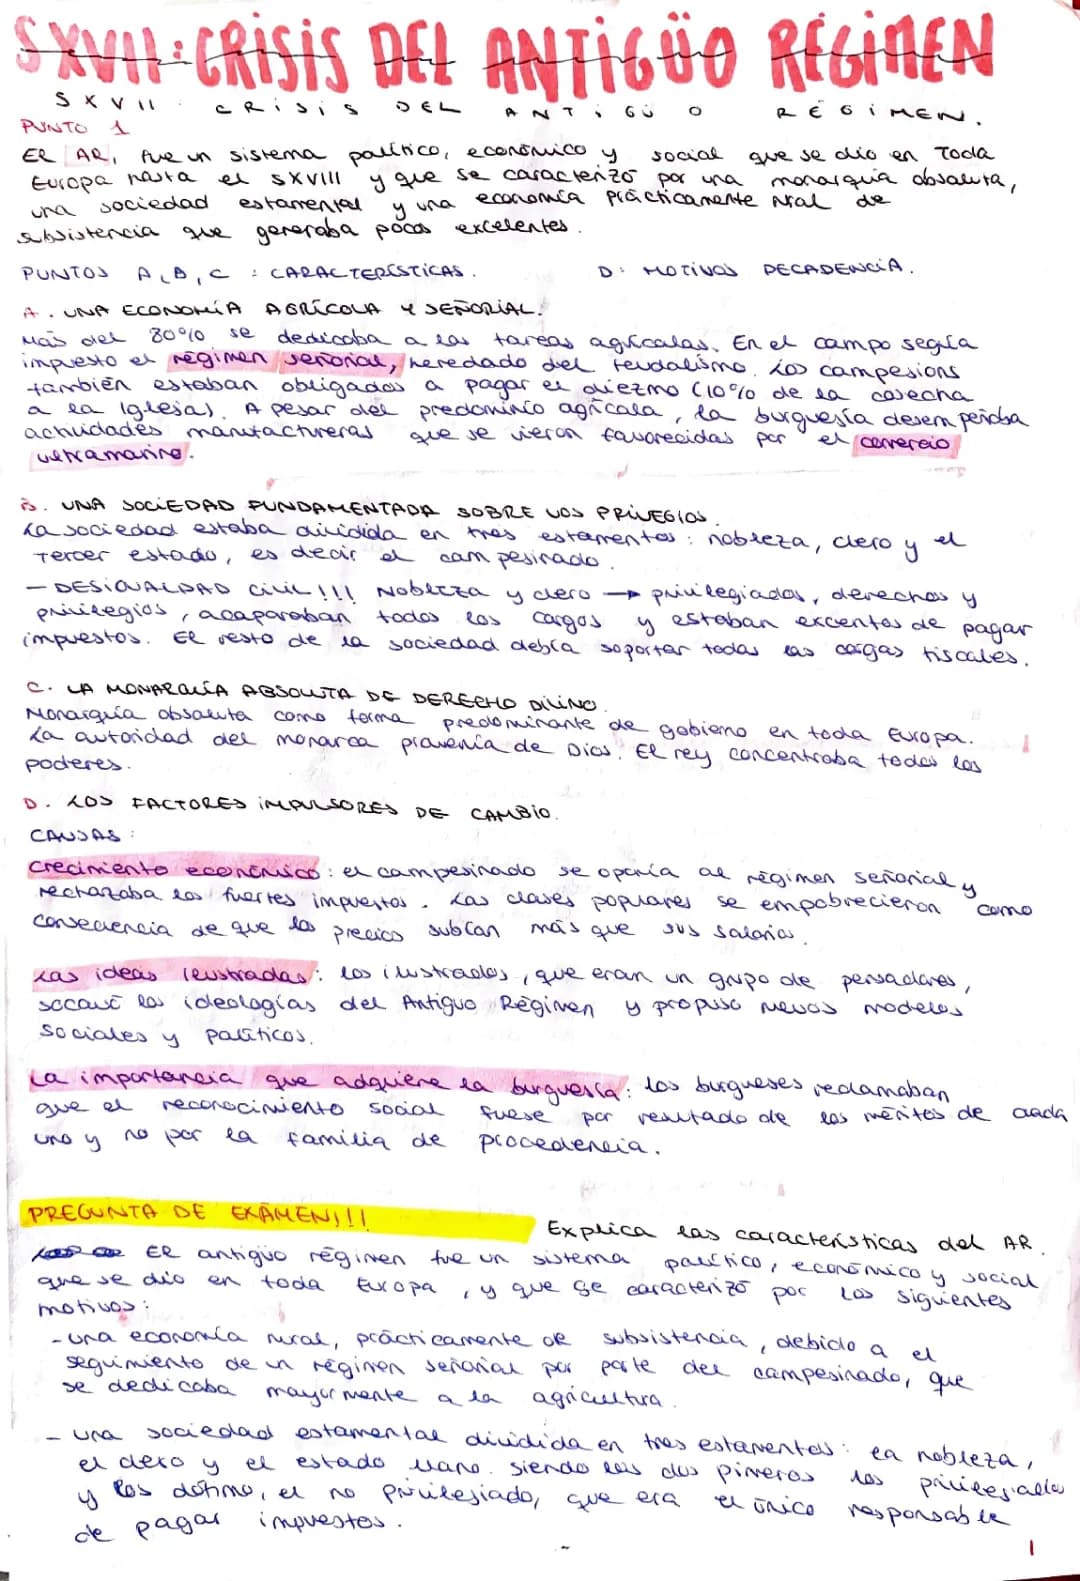 SXVII: CRISIS DEL ANTIGÜO REGIMEN
SXVII CRISIS DEL ANTIGÜO RÉGIMEN.
PUNTO 1
El AR, fue un sistema político, económico y social que se dio en Toda
Europa hasta el SXVIII y que se caracterizó por una monarquía absoluta,
una sociedad estamental y una economía prácticamente rural de
subsistencia que generaba pocos excelentes.
PUNTOS A, B, C : CARACTERÍSTICAS. D: MOTIVOS DECADENCIA.
A. UNA ECONOMÍA AGRÍCOLA Y SEÑORIAL.
Más del 80% se dedicaba a las tareas agrícolas. En el campo seguía
impuesto el régimen señorial, heredado del feudalismo. Los campesions
también estaban obligados a pagar el diezmo (10% de la cosecha
a la Iglesia). A pesar del predominio agrícola, la burguesía desempeñaba
actividades manufactureras que se vieron favorecidas por el comercio
ultramarino.
B. UNA SOCIEDAD FUNDAMENTADA SOBRE LOS PRIVEGIOS.
La sociedad estaba dividida en tres estamentos: nobleza, clero y el
Tercer estado, es decir el campesinado.
- DESIGUALDAD CIVIL!!! Nobleza y clero → privilegiados, derechos y
privilegios, acaparaban todos los cargos y estaban excentos de pagar
impuestos. El resto de la sociedad debía soportar todas las cargas fiscales.
C. LA MONARQUÍA ABSOLUTA DE DERECHO DIVINO.
Monarquía absoluta como forma predominante de gobierno en toda Europa.
La autoridad del monarca provenía de Dios. El rey concentraba todos los
poderes.
D. LOS FACTORES IMPULSORES DE CAMBIO.
CAUSAS:
Crecimiento económico: el campesinado se oponía al régimen señorial y
rechazaba los fuertes impuestos. Las clases populares se empobrecieron como
consecuencia de que los precios subían más que sus salarios.
Las ideas ilustradas: los ilustrados, que eran un grupo de pensadores,
socavó las ideologías del Antiguo Régimen y propuso nuevos modelos
sociales y políticos.
La importancia que adquiere la burguesía: los burgueses reclamaban
que el reconocimiento social fuese por resultado de los méritos de cada
uno y no por la familia de procedencia.
PREGUNTA DE EXÁMEN!!! Explica las características del AR.
El antigüo régimen fue un sistema político, económico y social
que se dio en toda Europa, y que se caracterizó por los siguientes
motivos:
- una economía rural, prácticamente de subsistencia, debido a el
seguimiento de un régimen señorial por parte del campesinado, que
se dedicaba mayormente a la agricultura.
- una sociedad estamental dividida en tres estamentos: la nobleza,
el clero y el estado llano. Siendo los dos pimeros los privilegiados
y los, el no privilegiado, que era el único responsable
de pagar impuestos.
1